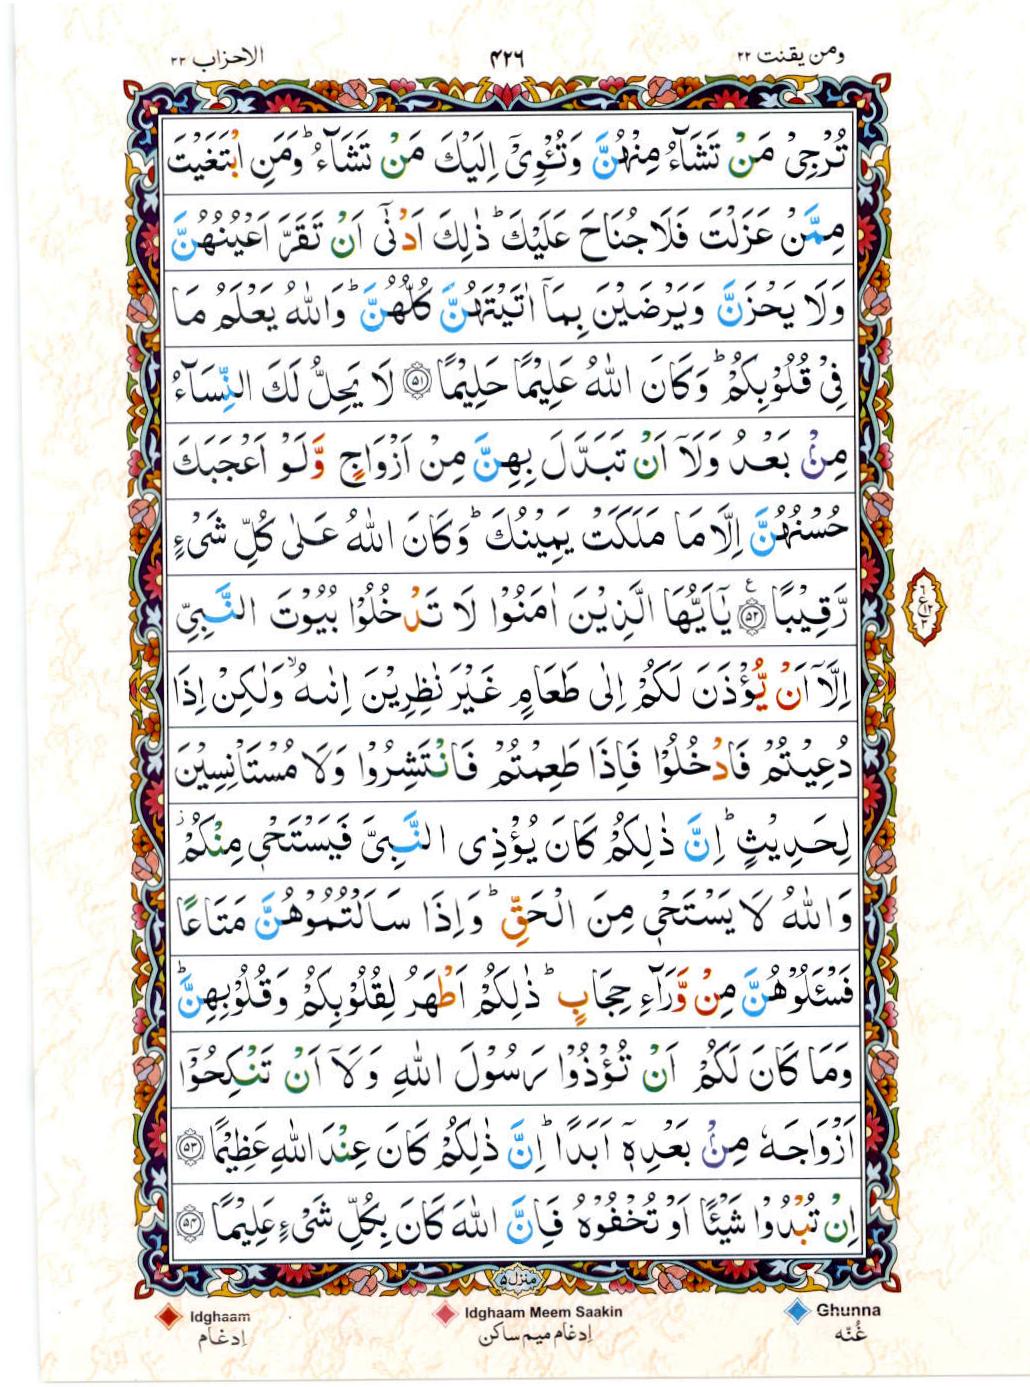 ومن یقنت ۲۲
۴۲۶
الاحزاب ۳۳
تُرْجِیْ مَنْ تَشَآءُ مِنْهُنَّ وَتُــْٔوِیْۤ اِلَیْكَ مَنْ تَشَآءُ ؕ وَمَنِ ابْتَغَیْتَ
مِمَّنْ عَزَلْتَ فَلَا جُنَاحَ عَلَیْكَ ؕ ذٰلِكَ اَدْنٰۤی اَنْ تَقَرَّ اَعْیُنُهُنَّ
وَلَا یَحْزَنَّ وَیَرْضَیْنَ بِمَاۤ اٰتَیْتَهُنَّ كُلُّهُنَّ ؕ وَاللّٰهُ یَعْلَمُ مَا
فِیْ قُلُوْبِكُمْ ؕ وَكَانَ اللّٰهُ عَلِیْمًا حَلِیْمًا ﴿۵۱﴾ لَا یَحِلُّ لَكَ النِّسَآءُ
مِنْۢ بَعْدُ وَلَاۤ اَنْ تَبَدَّلَ بِهِنَّ مِنْ اَزْوَاجٍ وَّلَوْ اَعْجَبَكَ
حُسْنُهُنَّ اِلَّا مَا مَلَكَتْ یَمِیْنُكَ ؕ وَكَانَ اللّٰهُ عَلٰی كُلِّ شَیْءٍ
رَّقِیْبًا ﴿۵۲﴾ ع یٰۤاَیُّهَا الَّذِیْنَ اٰمَنُوْا لَا تَدْخُلُوْا بُیُوْتَ النَّبِیِّ
اِلَّاۤ اَنْ یُّؤْذَنَ لَكُمْ اِلٰی طَعَامٍ غَیْرَ نٰظِرِیْنَ اِنٰىهُ ۙ وَلٰكِنْ اِذَا
دُعِیْتُمْ فَادْخُلُوْا فَاِذَا طَعِمْتُمْ فَانْتَشِرُوْا وَلَا مُسْتَاْنِسِیْنَ
لِحَدِیْثٍ ؕ اِنَّ ذٰلِكُمْ كَانَ یُؤْذِی النَّبِیَّ فَیَسْتَحْیٖ مِنْكُمْ ؗ
وَاللّٰهُ لَا یَسْتَحْیٖ مِنَ الْحَقِّ ؕ وَاِذَا سَاَلْتُمُوْهُنَّ مَتَاعًا
فَسْـَٔلُوْهُنَّ مِنْ وَّرَآءِ حِجَابٍ ؕ ذٰلِكُمْ اَطْهَرُ لِقُلُوْبِكُمْ وَقُلُوْبِهِنَّ ؕ
وَمَا كَانَ لَكُمْ اَنْ تُؤْذُوْا رَسُوْلَ اللّٰهِ وَلَاۤ اَنْ تَنْكِحُوْۤا
اَزْوَاجَهٗ مِنْۢ بَعْدِهٖۤ اَبَدًا ؕ اِنَّ ذٰلِكُمْ كَانَ عِنْدَ اللّٰهِ عَظِیْمًا ﴿۵۳﴾
اِنْ تُبْدُوْا شَیْـًٔا اَوْ تُخْفُوْهُ فَاِنَّ اللّٰهَ كَانَ بِكُلِّ شَیْءٍ عَلِیْمًا ﴿۵۴﴾
منزل۵
Ghunna
غُنّه
Idghaam Meem Saakin
اِدغام میم ساکن
Idghaam
اِدغام